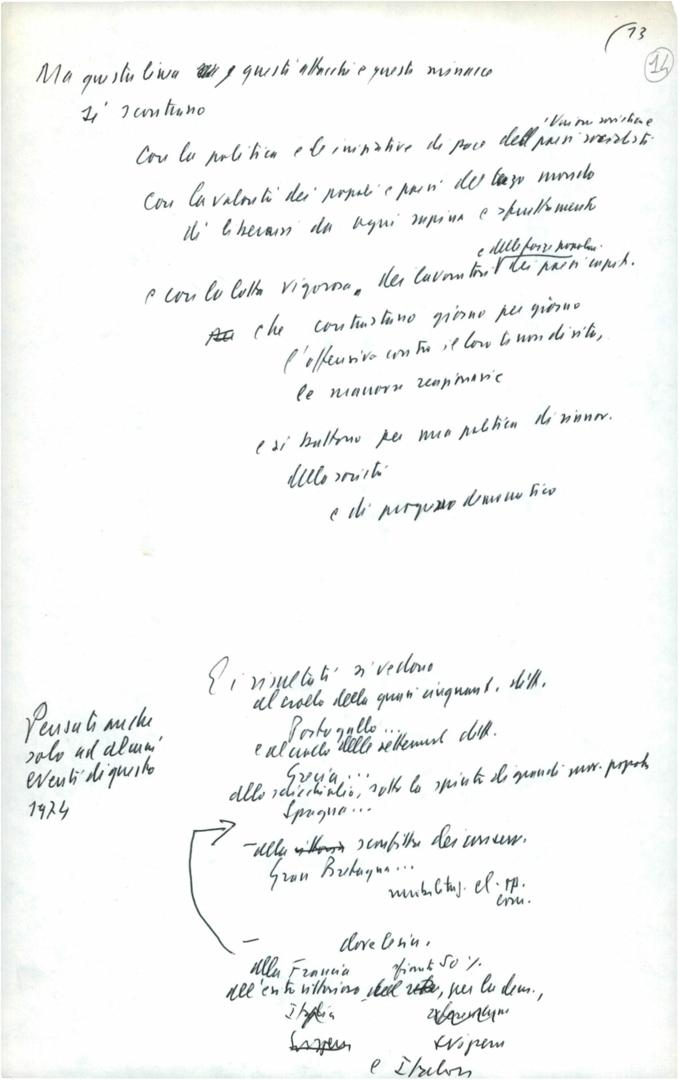 13
14
Ma questa linea e questi attacchi e queste minacce
si scontrano
con la politica e le iniziative di pace dell'Unione sovietica e
paesi socialisti
con la volontà dei popoli e paesi del terzo mondo
di liberarsi da ogni rapina e sfruttamento
e delle forze popolari
e con la lotta vigorosa dei lavoratori dei paesi capit.
che contrastano giorno per giorno
l'offensiva contro il loro tenore di vita,
le manovre reazionarie
e si battono per una politica di rinnov.
della società
e di progresso democratico
E i risultati si vedono
Pensati anche
solo ad alcuni
eventi di questo
1974
al crollo della quasi cinquant. ditt.
Portogallo...
e al crollo della settenn. ditt.
Grecia...
allo scricchiolio, sotto la spinta di grandi mov. popolari
Spagna...
- alla sconfitta dei conserv.
Gran Bretagna...
el.
-
alla Francia sfiorato 50%
all'esito vittorioso, per la dem.,
Italia
e Italia